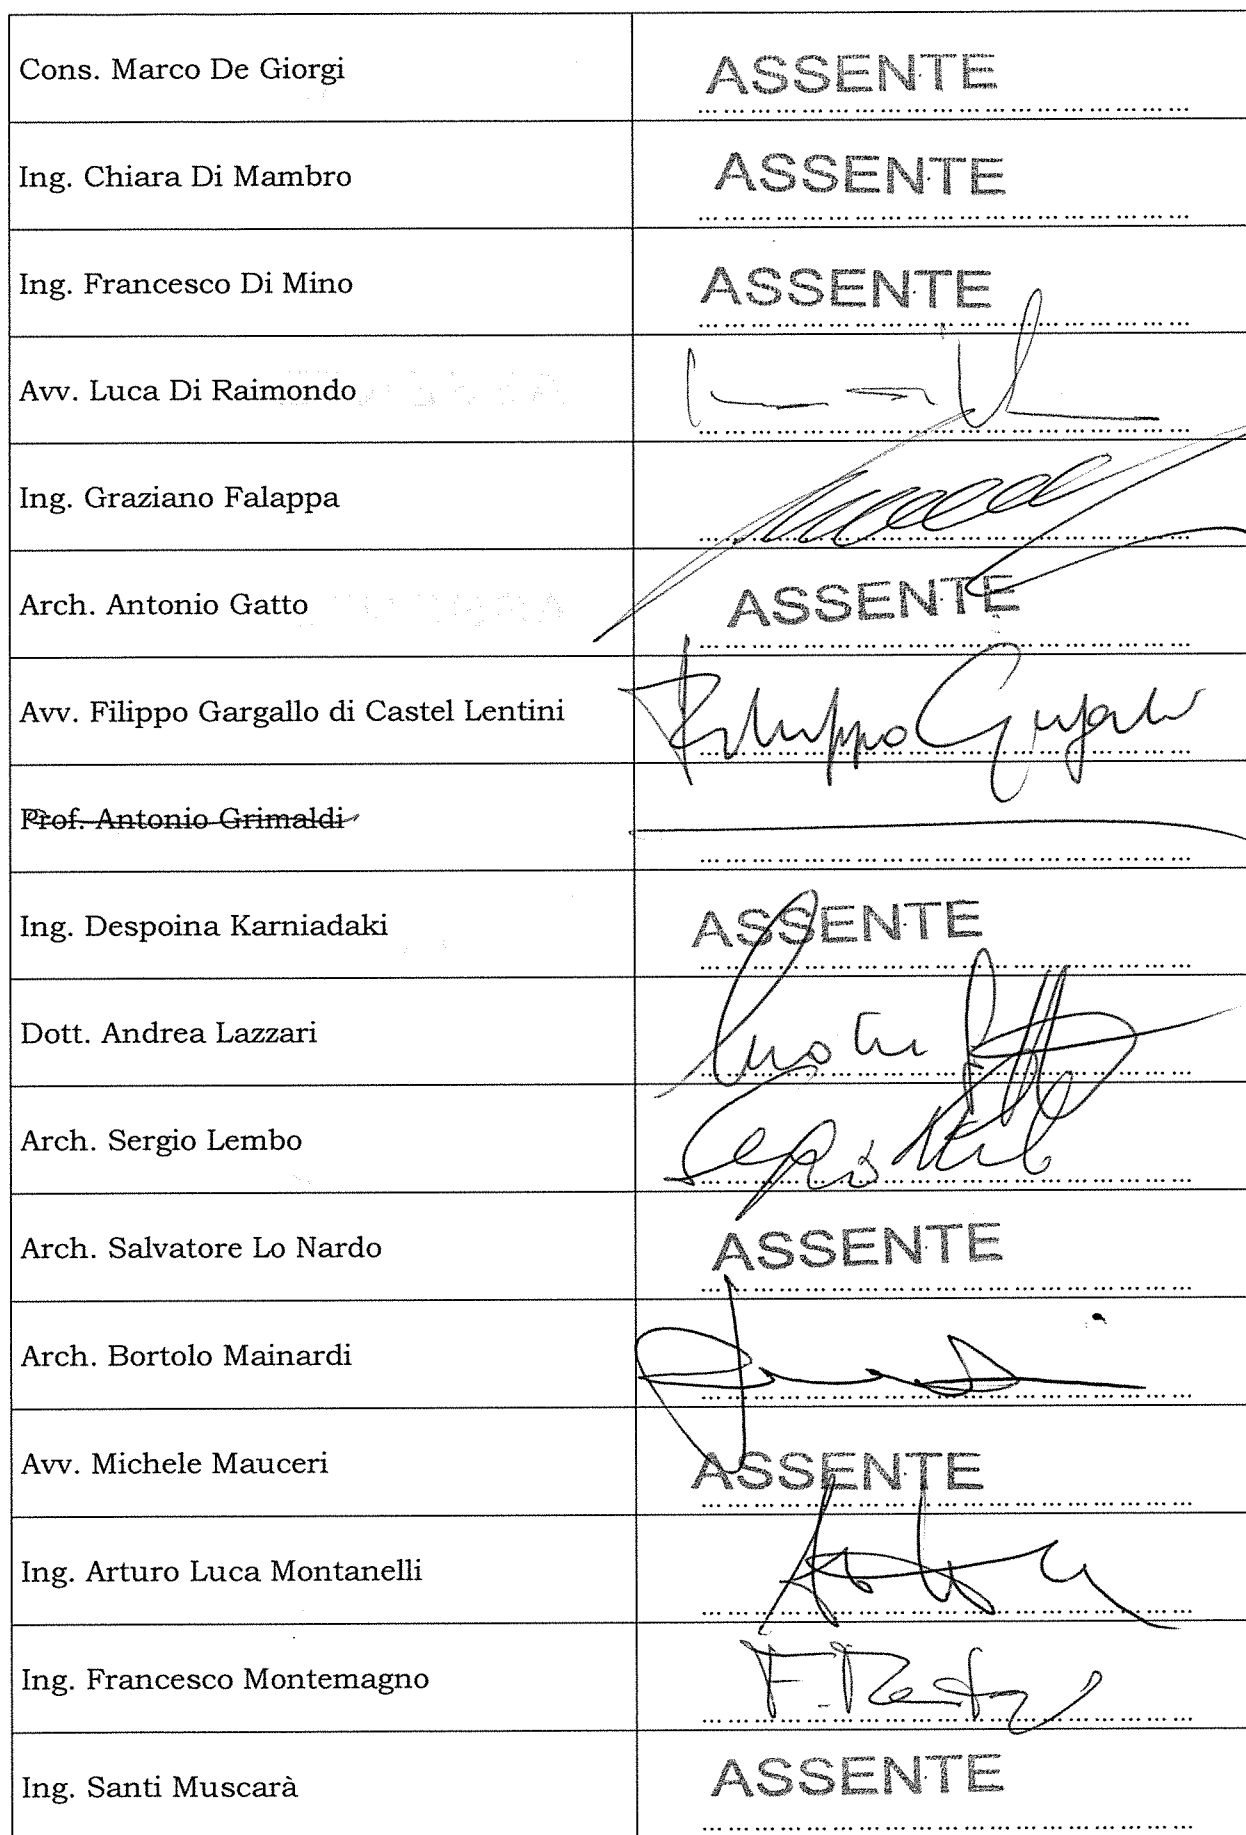 Cons. Marco De Giorgi ASSENTE
Ing. Chiara Di Mambro ASSENTE
Ing. Francesco Di Mino ASSENTE
Avv. Luca Di Raimondo
Ing. Graziano Falappa
Arch. Antonio Gatto ASSENTE
Avv. Filippo Gargallo di Castel Lentini Filippo Gargallo
Prof. Antonio Grimaldi
Ing. Despoina Karniadaki ASSENTE
Dott. Andrea Lazzari
Arch. Sergio Lembo
Arch. Salvatore Lo Nardo ASSENTE
Arch. Bortolo Mainardi
Avv. Michele Mauceri ASSENTE
Ing. Arturo Luca Montanelli
Ing. Francesco Montemagno
Ing. Santi Muscarà ASSENTE